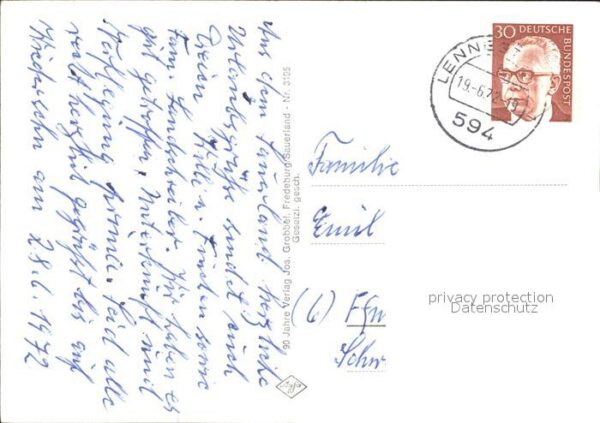 Aus dem Sauerland herzliche
Urlaubsgrüße sendet euch
Fam. Landschreiber. Wir haben es
gut getroffen, Unterkunft und
Verpflegung prima. Seid alle
recht herzlich gegrüßt bis auf
Wiedersehn am 28.6.1972
90 Jahre Verlag Jos. Grobbel, Fredeburg/Sauerland - Nr. 3195
Gesetzl. gesch.
30 DEUTSCHE
BUNDESPOST
19.-6.72-19
594
Familie
Emil
(6) Ffm
Schw
privacy protection
Datenschutz